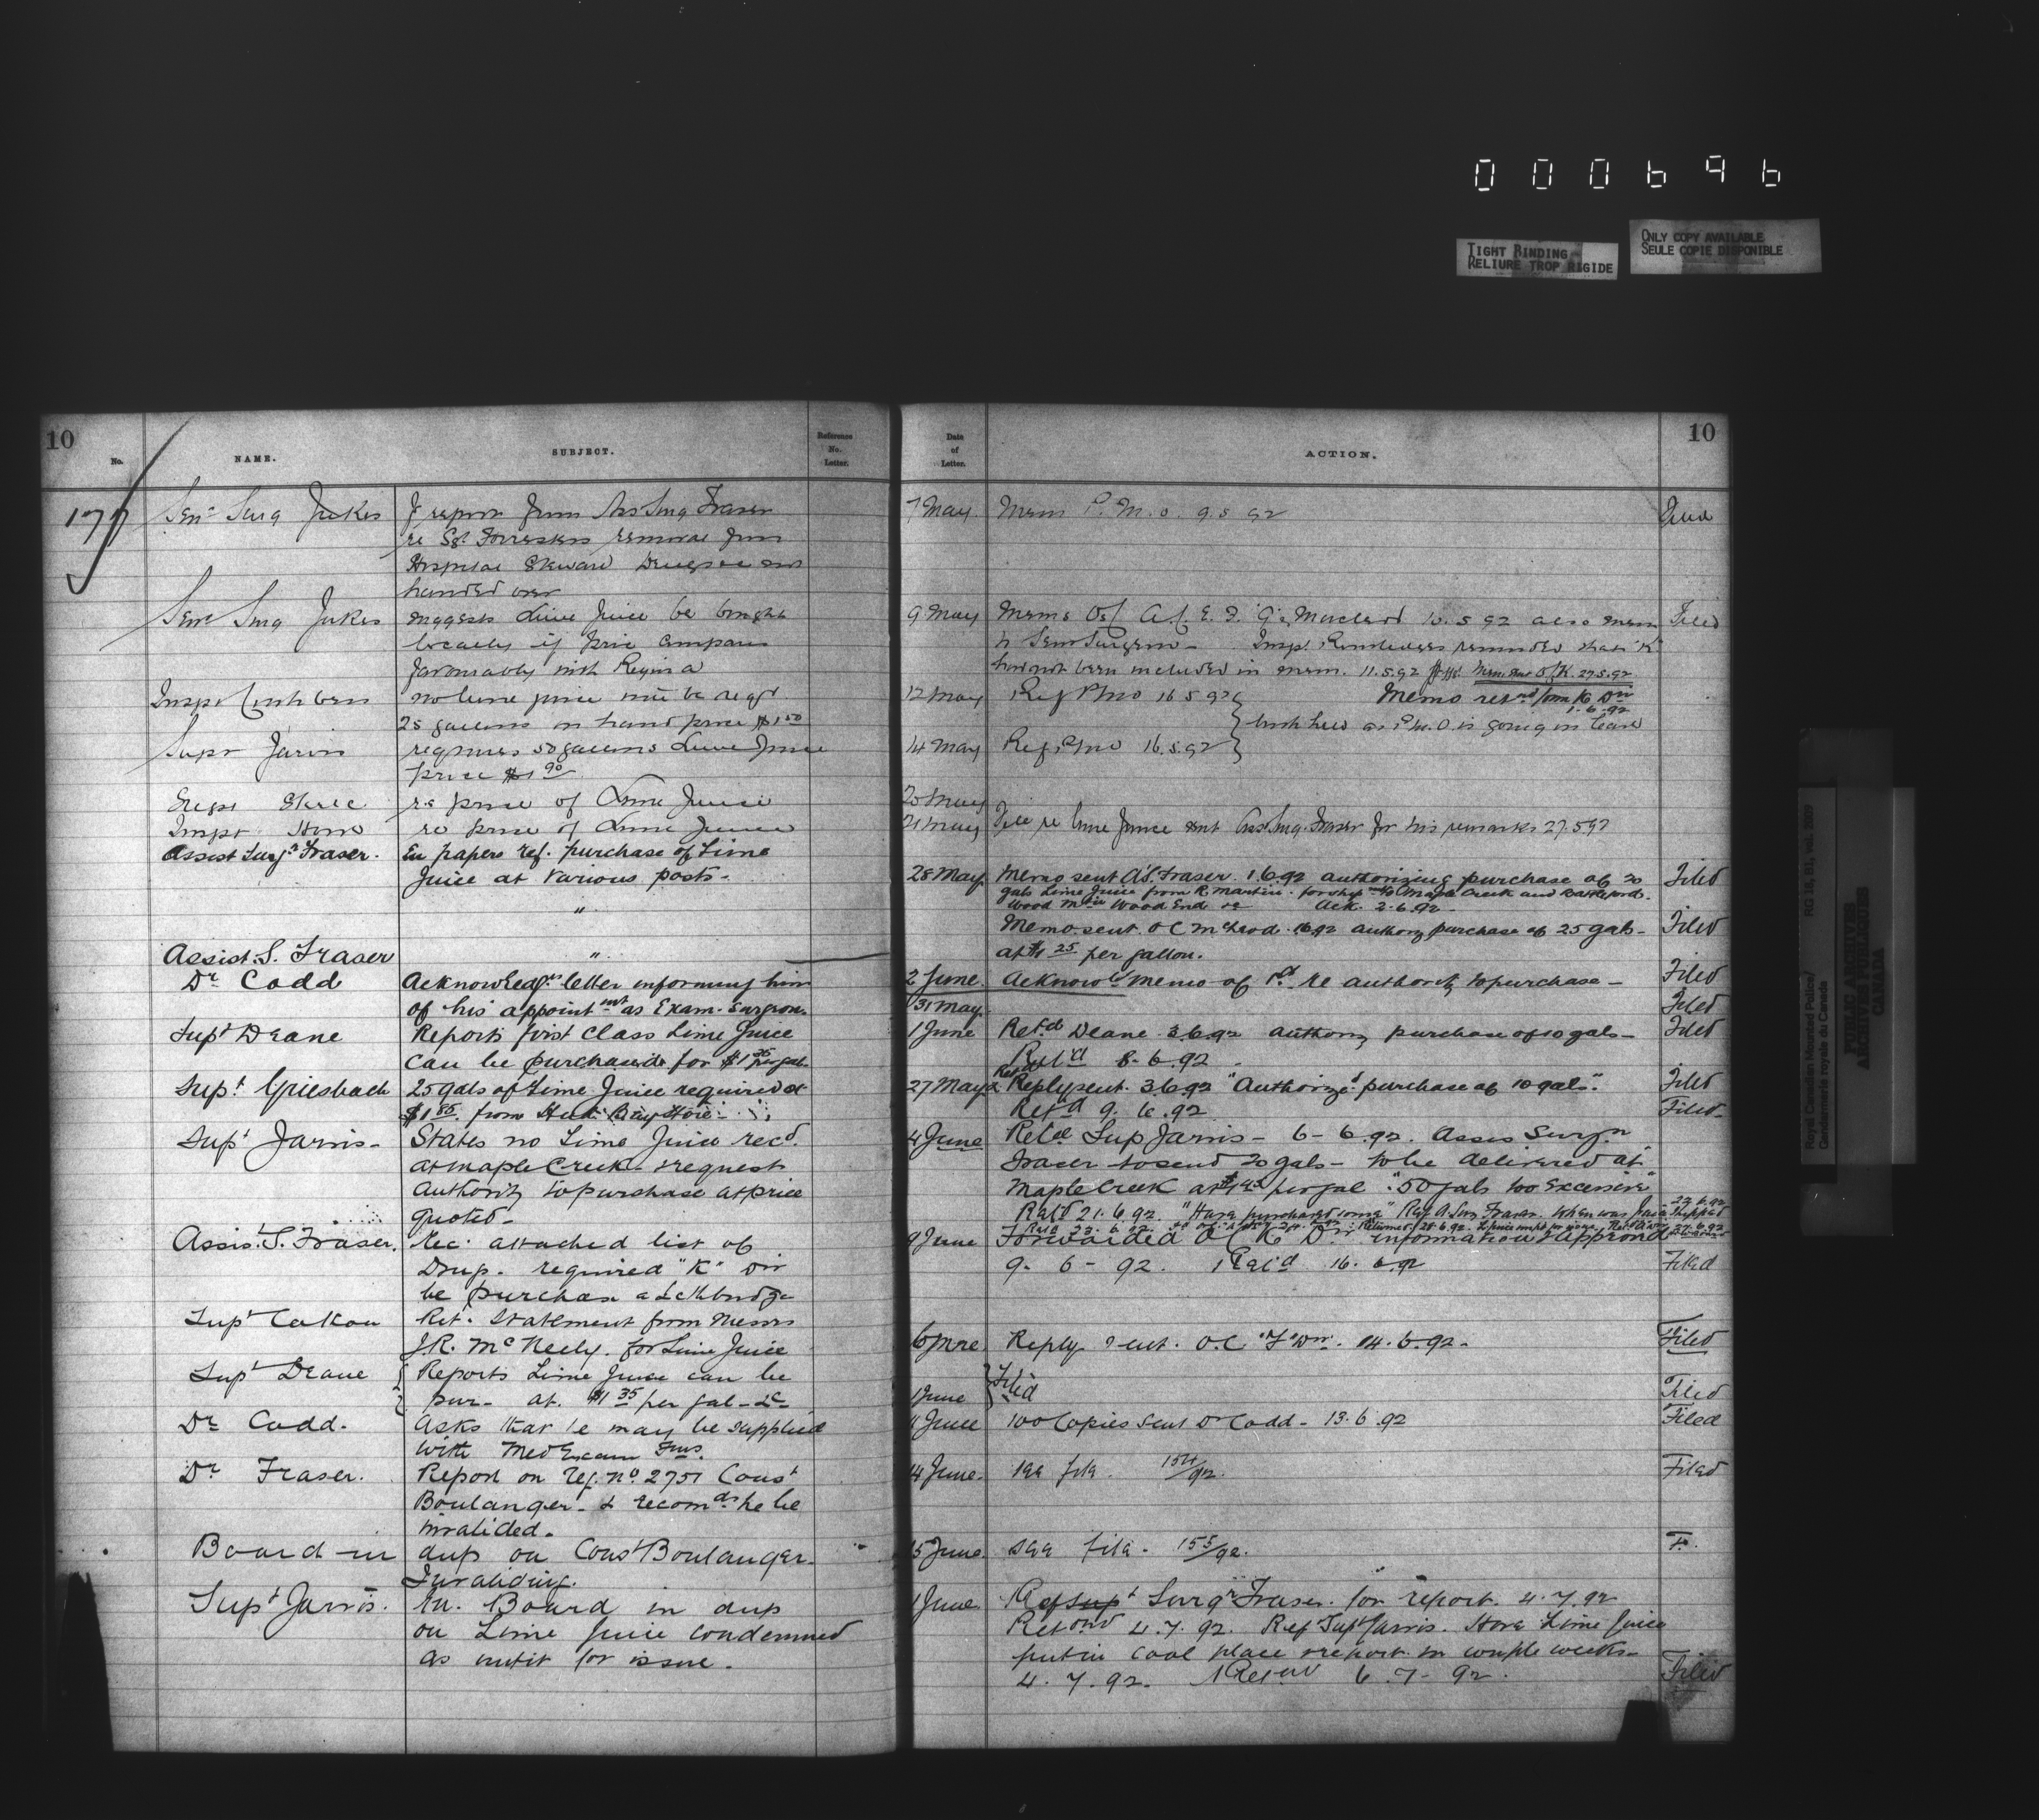 000696
TIGHT BINDING
RELIURE TROP RIGIDE
ONLY COPY AVAILABLE
SEULE COPIE DISPONIBLE
10
No.
NAME.
SUBJECT.
Reference
No.
Letter.
177
Senr Surg Jukes
report from Ass Surg Fraser
re Sgt. Forresters removal from
Hospital Steward
handed over
Senr Surg Jukes
suggests Lime Juice be bought
locally if price compares
favourably with Regina
Inspr
no lime juice will be reqd
25 gallons on hand price $1 50
Supt Jarvis
requires 50 gallons Lime Juice
price $1 90
re price of Lime Juice
Inspr
re price of Lime Juice
Assist Surgn Fraser.
En papers ref. purchase of Lime
Juice at various posts-
"
Assist. S. Fraser
"
Dr Codd
Acknowledgs letter informing him
of his appointmt as Exam. Surgeon
Supt Deane
Reports first class Lime Juice
can be purchased for $1 35 per gal.
Supt. Griesbach
25 gals of Lime Juice required @
from Hud. Bay Store -
Supt Jarvis-
States no Lime Juice recd.
at Maple Creek & request
authority to purchase at price
quoted-
Assist. S. Fraser.
attached list of
required "K" Div
be purchase
Supt
Ret. Statement from Messrs
J.R. McNeely. for Lime Juice
Supt Deane
Reports Lime Juice can be
pur- at. $1 35 per gal- &c-
Dr Codd.
Asks that he may be supplied
with Med Exam Fms.
Dr Fraser.
Report on Reg. No 2751 Const
Boulanger- & recomds he be
invalided.
Board in
dup on Const Boulanger.
Invaliding.
Supt Jarvis.
En. Board in dup
on Lime Juice condemned
as unfit for issue.
Date
of
Letter.
ACTION.
10
7 May
Memo P.M.O. 9.5 92
Filed
9 May
Memo
Macleod 10.5 92 also memo
Filed
to Senr Surgeon-
reminded that "K"
had not been included in mem. 11.5.92
27.5.92
12 May
Ref PMO 16 5 92
Memo retnd from K Divn
1.6.92
both held as P.M.O. is going on leave
14 May
Ref. PMO 16.5.92
20 May
21 May
File re Lime Juice sent Asst Surg. Fraser for his remarks 27.5 92
28 May
Memo sent A.S. Fraser. 1.6.92 authorizing purchase of 20
Filed
gals Lime Juice from R. Martin. for ship to Maple Creek and Battleford.
Wood Mtn Wood End Ack. 2.6.92-
Memo sent. O C McLeod 1.6.92 purchase of 25 gals-
Filed
at $1 25 per gallon.
2 June.
Acknowd memo of 1st re authority to purchase-
Filed
31 May.
Filed
1 June
Retd Deane 3.6.92 purchase of 10 gals-
Filed
Ret'd 8.6.92
27 May
Reply sent. 3.6.92 "Authorized purchase of 10 gals".
Filed
Ret'd 9.6.92
Filed-
4 June
Supt Jarvis- 6-6.92. Assis Surgn
Fraser to send 20 gals- to be delivered at
Maple Creek at per gal. "50 gals too excessive"
Ret'd 21.6.92 "Have purchased some" Ref A. Sur. Fraser. When was Juice Shipped
9 June
Forwarded O C "K" Dn. information & approval
9-6-92. Ret'd 16.6.92
Filed
6 June
Reply sent. O.C "F" Dn. 14.6.92-
Filed
1 June
Filed
Filed
June
100 Copies sent Dr Codd- 13.6.92
Filed
14 June.
see file. 154/92.
Filed
15 June.
see file. 155/92.
F.
June
Ref Surgn Fraser. for report. 4.7.92
4.7.92. Ref Supt Jarvis. Have Lime Juice
put in cool place & report in couple weeks-
4.7.92. 6-7-92.
Filed
Royal Canadian Mounted Police/
Gendarmerie royale du Canada
RG 18, B1, vol. 2009
PUBLIC ARCHIVES
ARCHIVES PUBLIQUES
CANADA